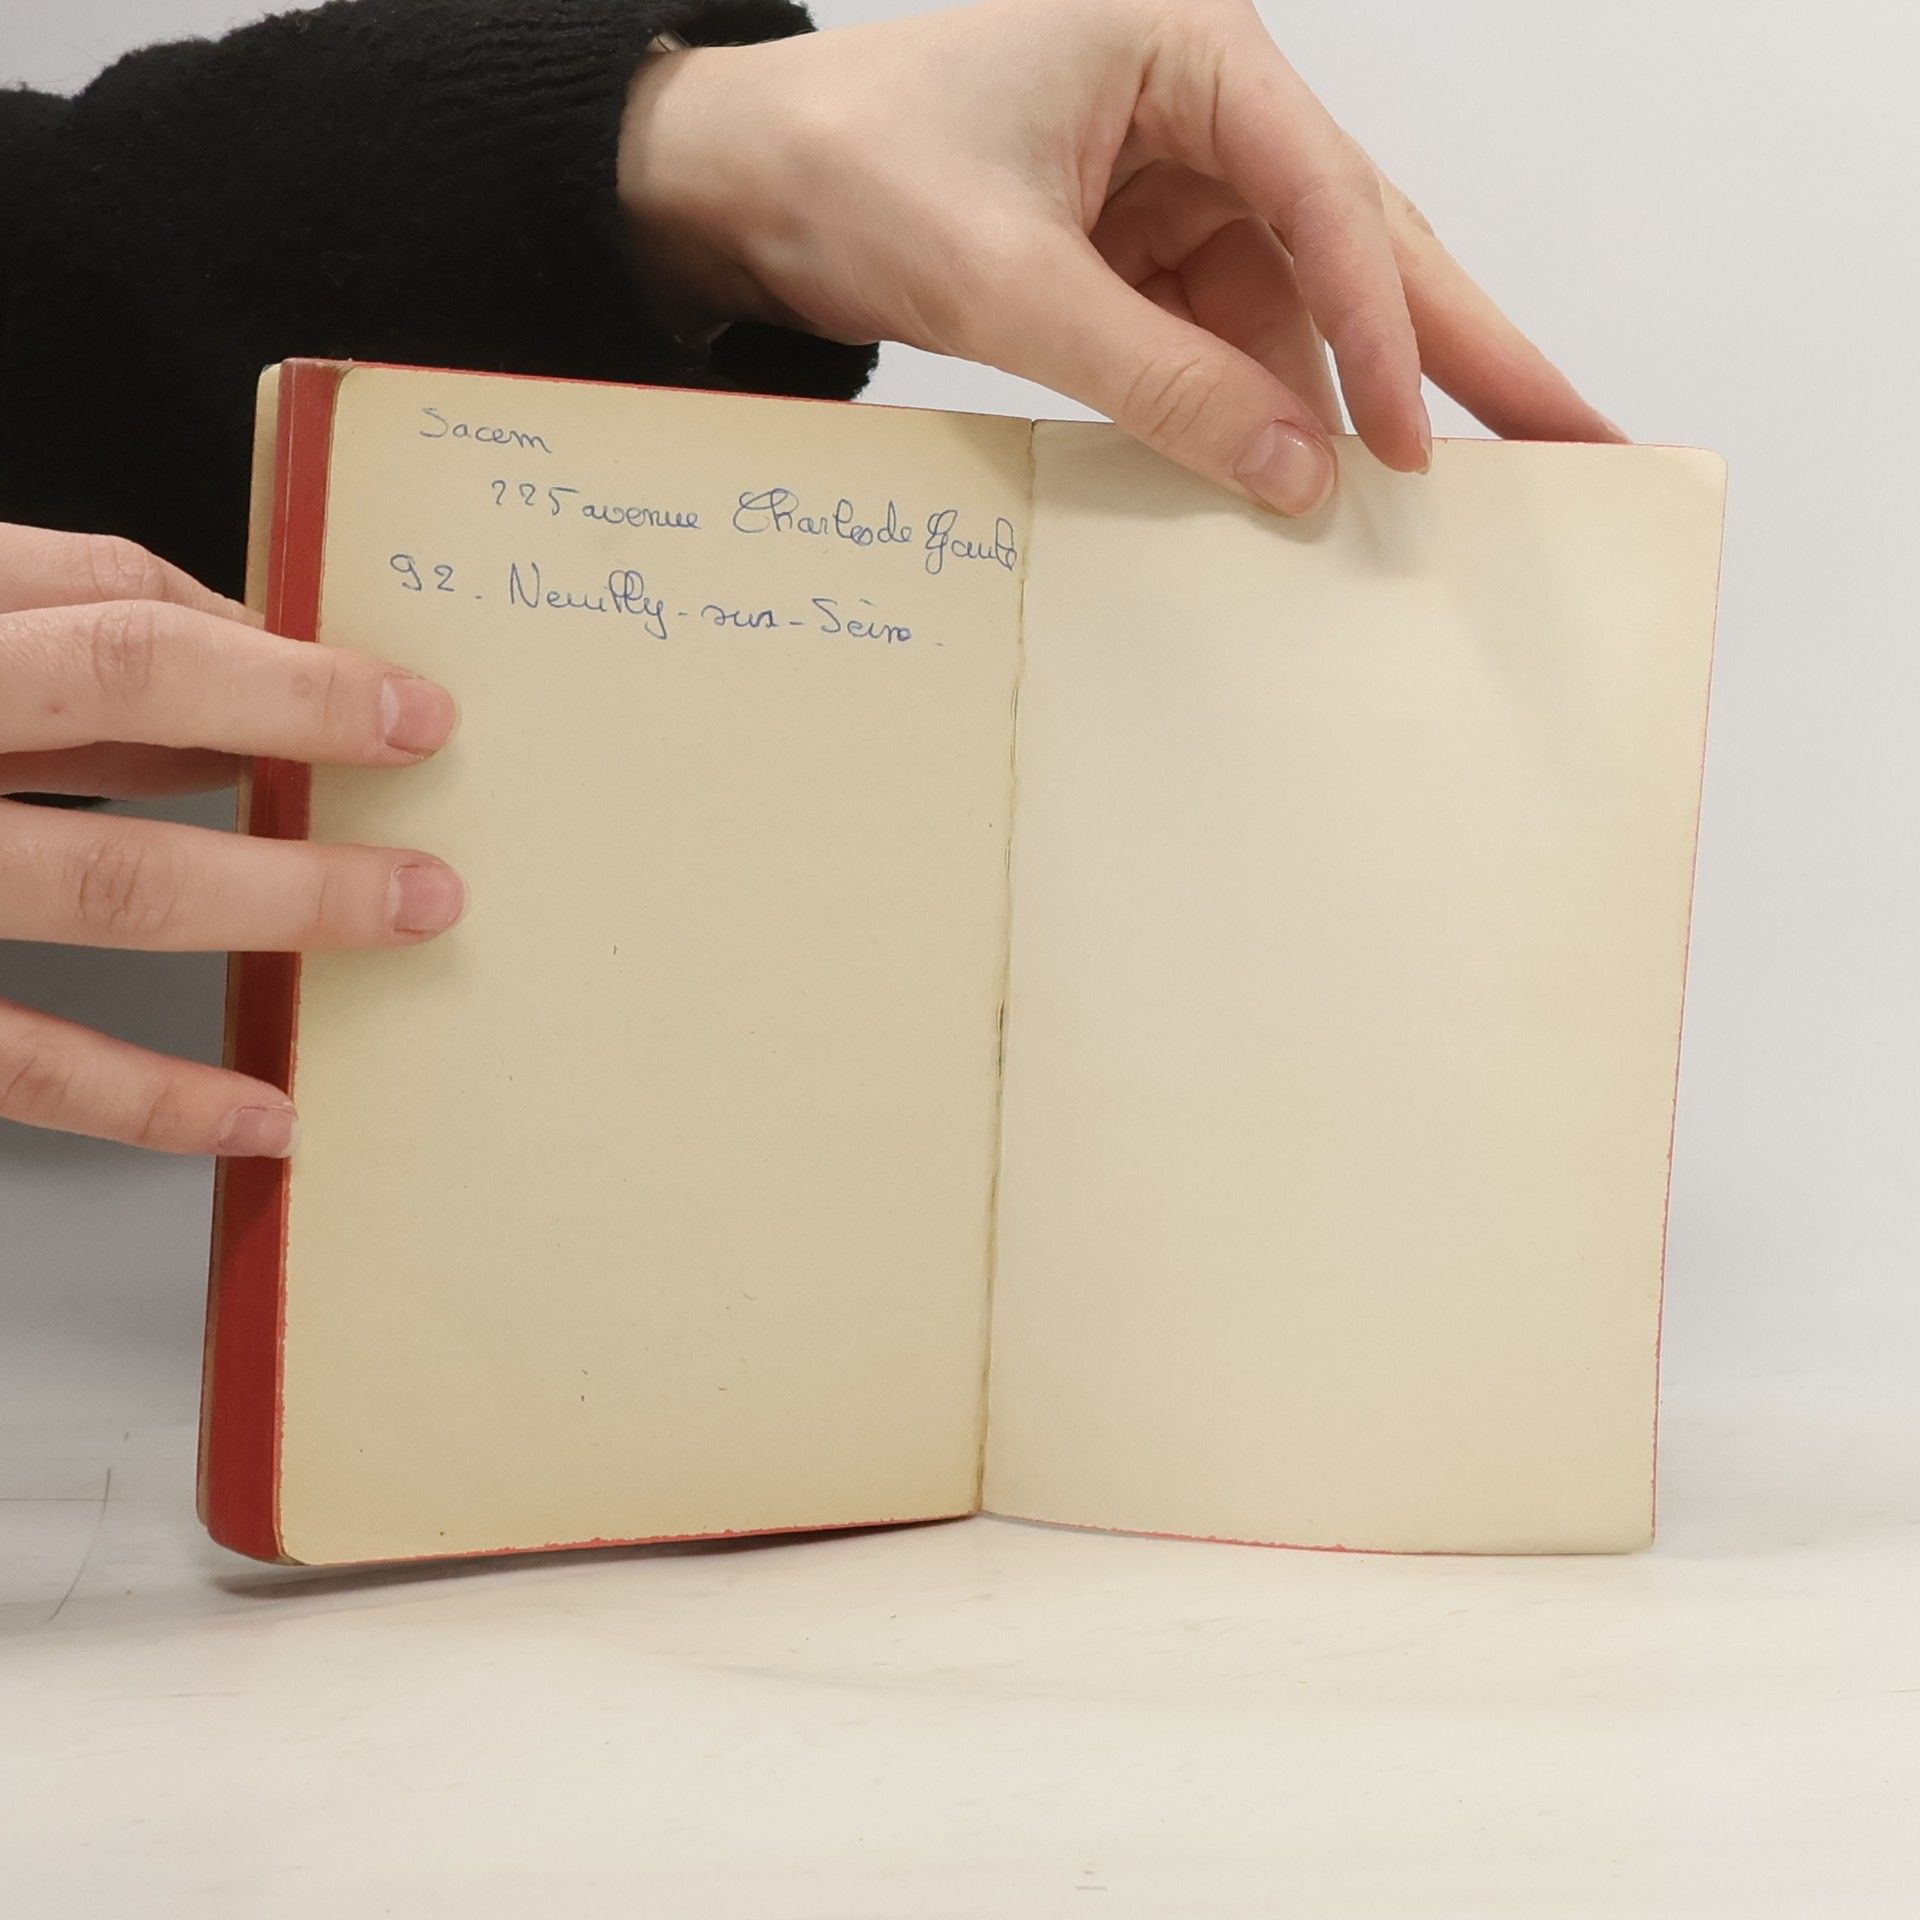 Sacem
225 avenue Charles de Gaulle
92. Neuilly-sur-Seine.